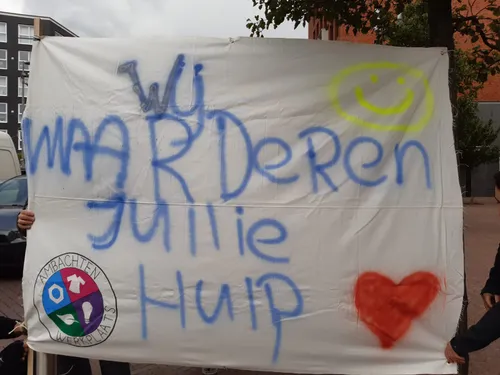 Wij
WAARDEREN
Jullie
Hulp
AMBACHTEN
WERKPLAATS